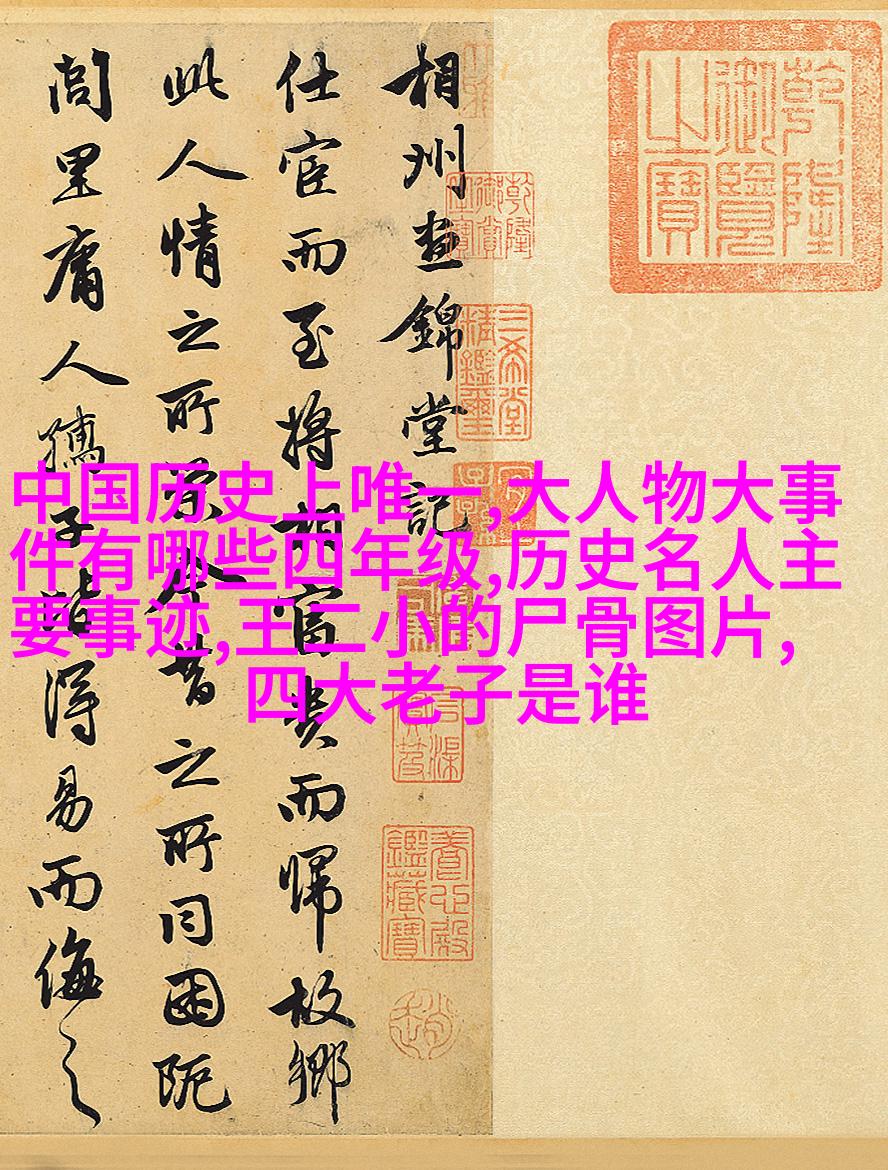 乾隆御覽之寶
相州晝錦堂記
三希堂精鑑璽
宜子孫
養心殿鑑藏寶
仕宦而至將相富貴而歸故鄉
此人情之所榮今昔之所同困阨
閭里庸人孺子皆得易而侮之
中国历史上唯一,大人物大事
件有哪些四年级,历史名人主
要事迹,王二小的尸骨图片,
四大老子是谁